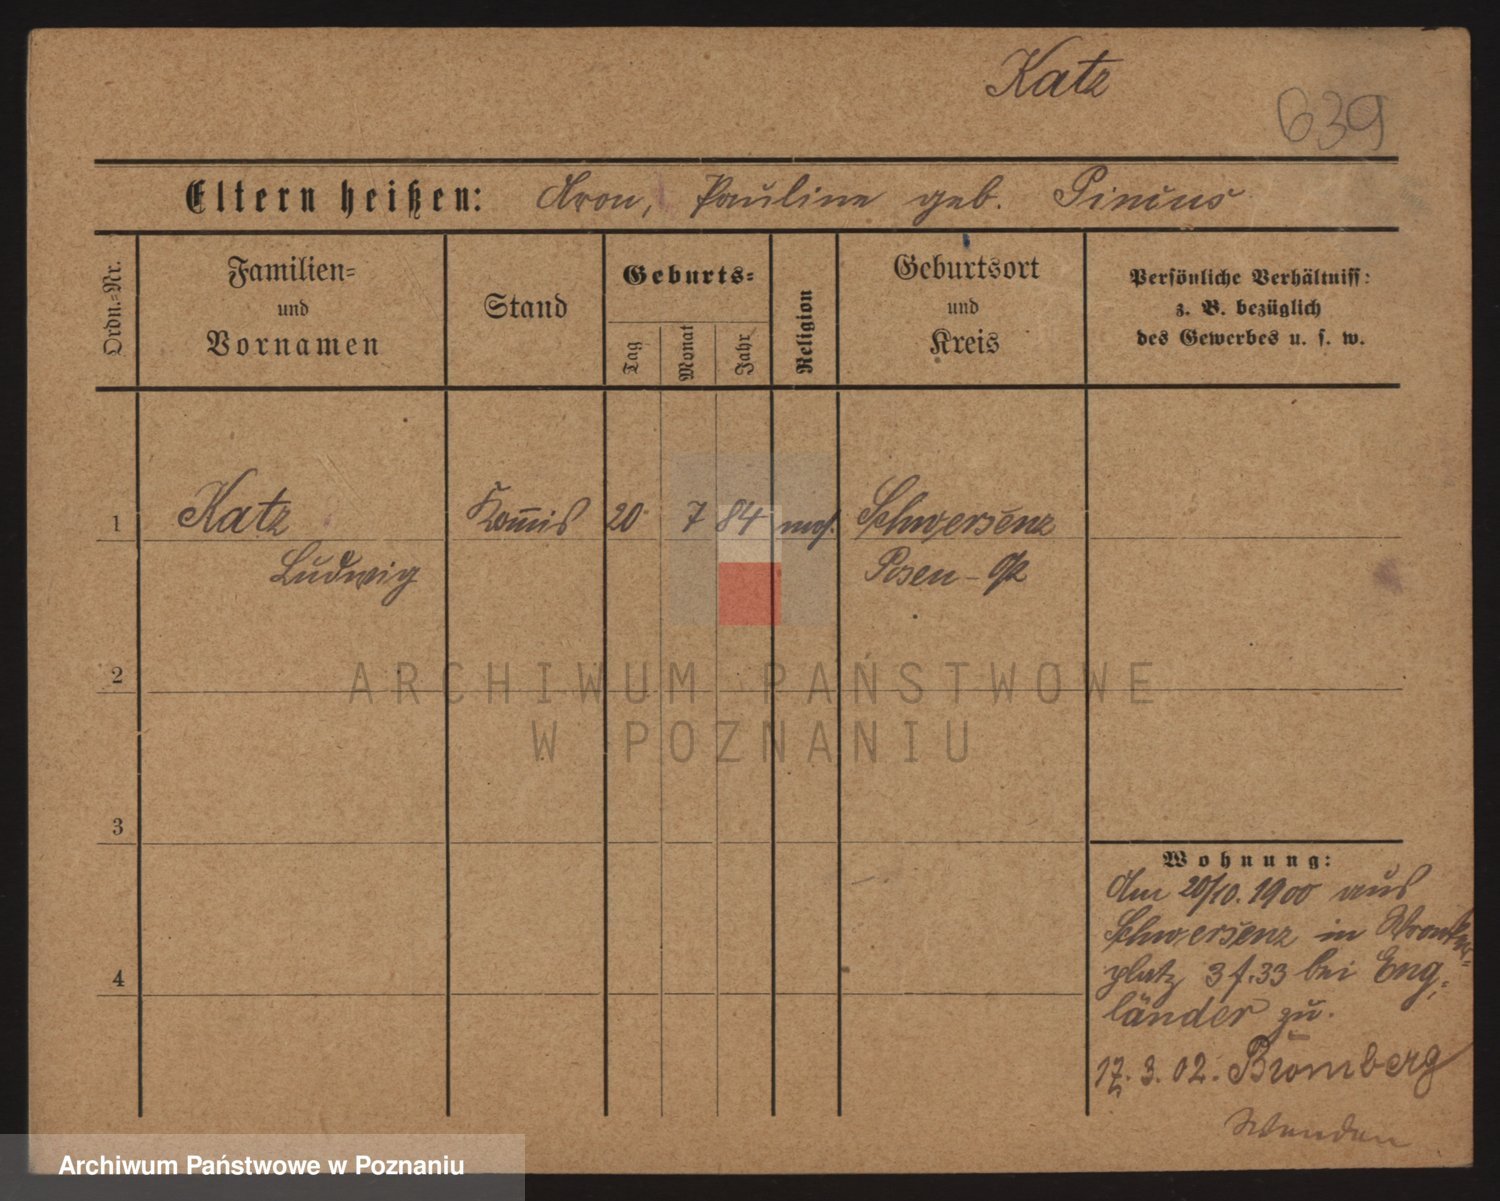 Katz
639
Eltern heißen: Aron, Pauline geb. Pincus
Ordn.=Nr.
Familien=
und
Vornamen
Stand
Geburts=
Tag
Monat
Jahr
Religion
Geburtsort
und
Kreis
Persönliche Verhältniss:
z. B. bezüglich
des Gewerbes u. s. w.
1 Katz Kommis 20 7 84 mos. Schwersenz
Ludwig Posen-
2
ARCHIWUM PAŃSTWOWE
W POZNANIU
3
Wohnung:
Am 20/10. 1900 aus
Schwersenz in Wronker=
4
platz 3 f. 33 bei Eng=
länder zu.
17. 3. 02. Bromberg
Wenden
Archiwum Państwowe w Poznaniu